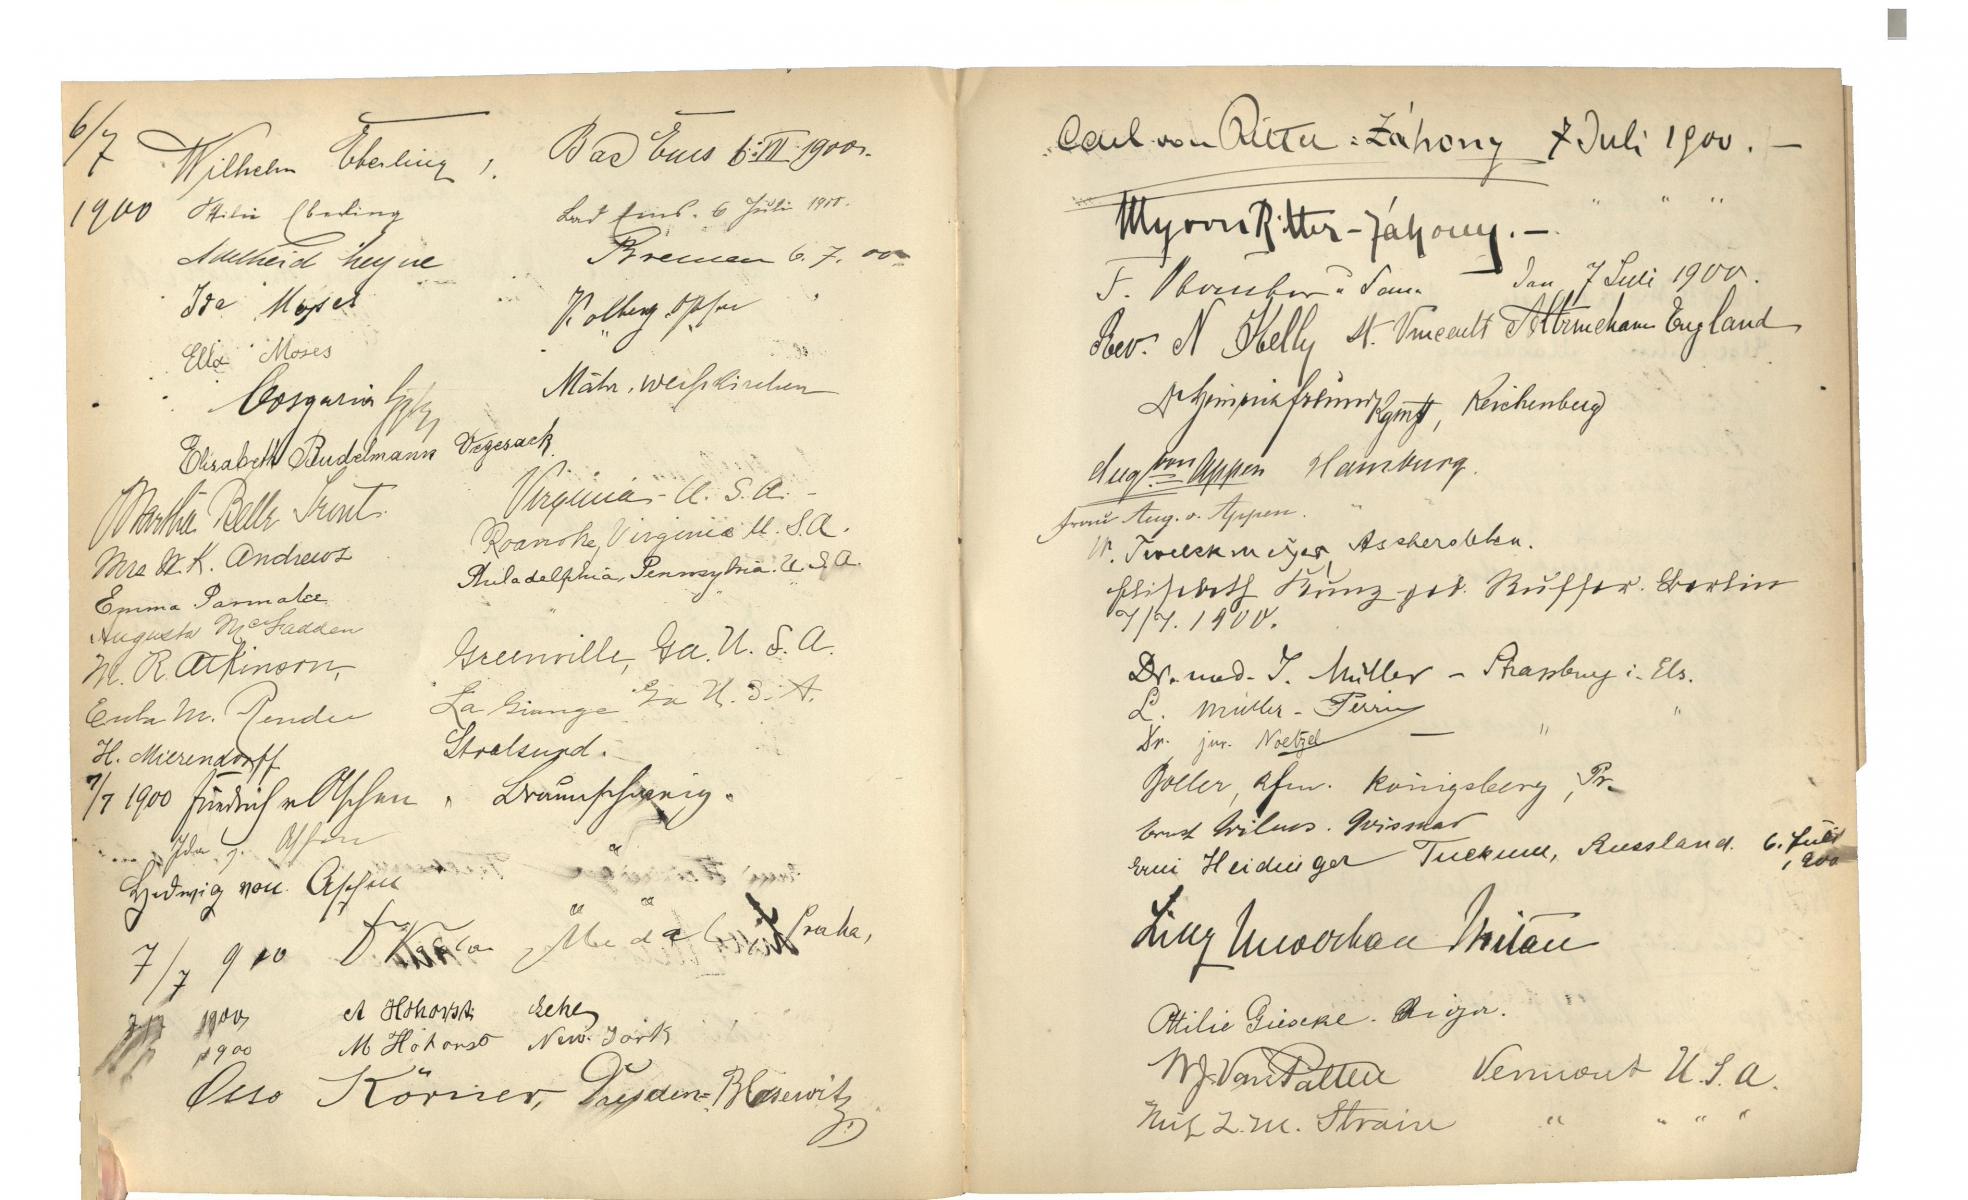 6/7 Wilhelm Eberling, Bad Ems 6.VII 1900.
1900 Ottilie Eberling Bad Ems. 6 Juli 1900.
Adelheid Heyne Bremen 6.7.00
Ida Moses Kolberg Ostsee
Ella Moses " "
Mähr. Weisskirchen
Elisabeth Budelmann Vegesack
Martha Belle Trout Virginia - U.S.A. -
Mrs W.K. Andrews Roanoke, Virginia U.S.A.
Emma Parmalee Philadelphia, Pennsylvania. U.S.A.
Augusta McFadden "
M. R. Atkinson, Greenville, Ga. U.S.A.
Eula M. Render La Grange Ga U.S.A.
H. Mierendorff Stralsund.
7/7 1900 Friedrich v. Braunschweig.
Ida v. "
Hedwig von " "
7/7 900 Dr Praha,
7/7 1900 A Hohorst
1900 M Hohorst New-York
Otto Körner, Dresden-Blasewitz
Carl von Ritter-Záhony 7 Juli 1900. -
von Ritter-Záhony. - " " "
F. 7 Juli 1900.
Rev. N Kelly St. Vincents Altrincham England
Dr Heinrich Reichenberg
Aug. von Appen Hamburg.
Frau Aug. v. Appen. "
W. Twelckmeyer, Aschersleben.
Elisabeth Kunz geb. Ruffer. Berlin
7/7. 1900.
Dr. med. J. Müller - Strassburg i. Els.
L. Müller - Perrin " "
Dr. jur. Noetzel -
Boller, Kfm. Königsberg, Pr.
Ernst Wilms. Wismar
Erni Heidinger Tuckum, Russland. 6. Juli 1900
Lilly Mitau
Ottilie Gieseke. Riga.
W.J. Van Patten Vermont U.S.A.
L.M. Strain " " " "